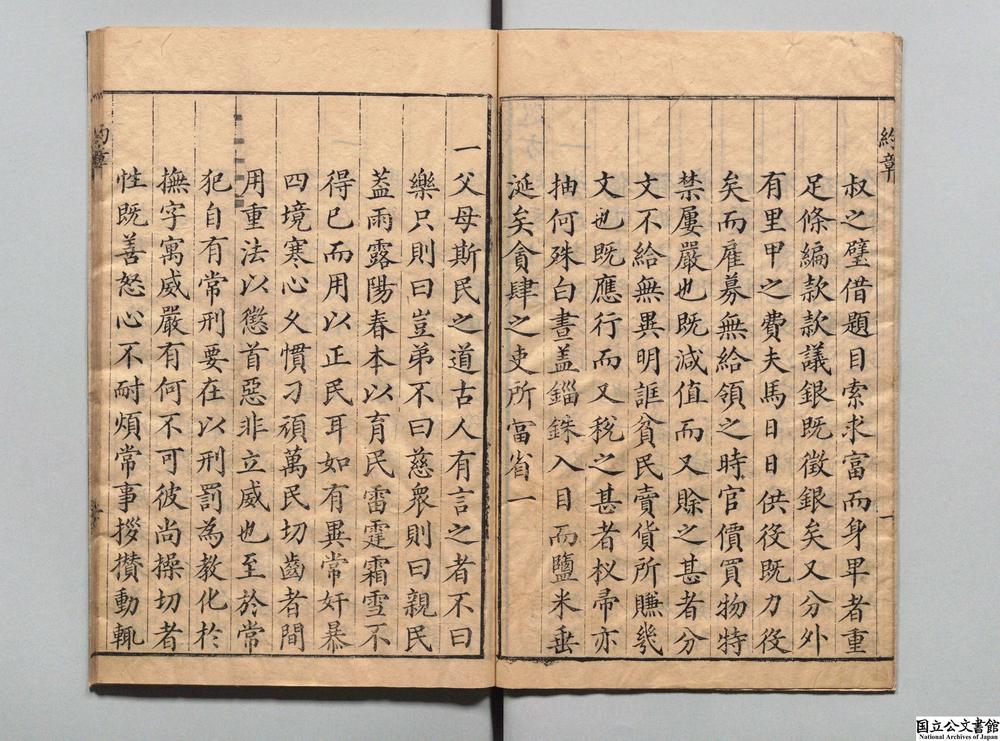 約章
叔之璧借題目索求富而身卑者重
足條編款款議銀既徵銀矣又分外
有里甲之費夫馬日日供役既力役
矣而雇募無給領之時官價買物特
禁屢嚴也既減值而又賒之甚者分
文不給無異明誆貧民賣貨所賺幾
文也既應行而又稅之甚者杈帚亦
抽何殊白晝盖錙銖入目而鹽米垂
涎矣貪肆之吏所當省一
一
一父母斯民之道古人有言之者不曰
樂只則曰豈弟不曰慈衆則曰親民
蓋雨露陽春本以育民雷霆霜雪不
得已而用以正民耳如有異常奸暴
四境寒心久慣刁頑萬民切齒者間
用重法以懲首惡非立威也至於常
犯自有常刑要在以刑罰為教化於
撫字寓威嚴有何不可彼尚操切者
性既善怒心不耐煩常事拶攢動輒
約章
国立公文書館
National Archives of Japan